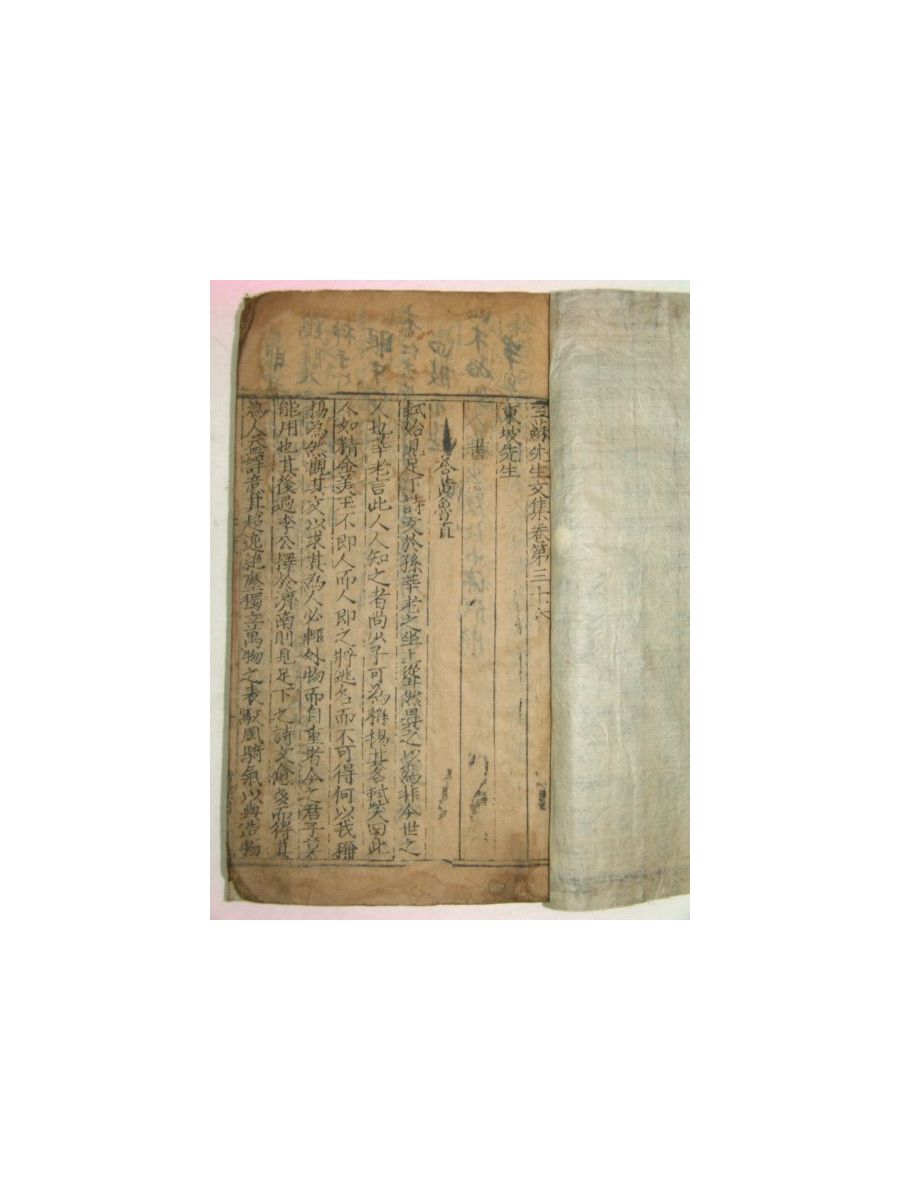 三蘇先生文集卷第三十六
東坡先生
書
答黃魯直
軾始見足下詩文於孫莘老之坐上聳然異之以爲非今世之
人也莘老言此人人知之者尚少子可爲稱揚其名軾笑曰此
人如精金美玉不即人而人即之將逃名而不可得何以我稱
揚爲然觀其文以求其爲人必輕外物而自重者今之君子莫
能用也其後過李公擇於濟南則見足下之詩文愈多而得其
爲人益詳意其超逸絶塵獨立萬物之表馭風騎氣以與造物